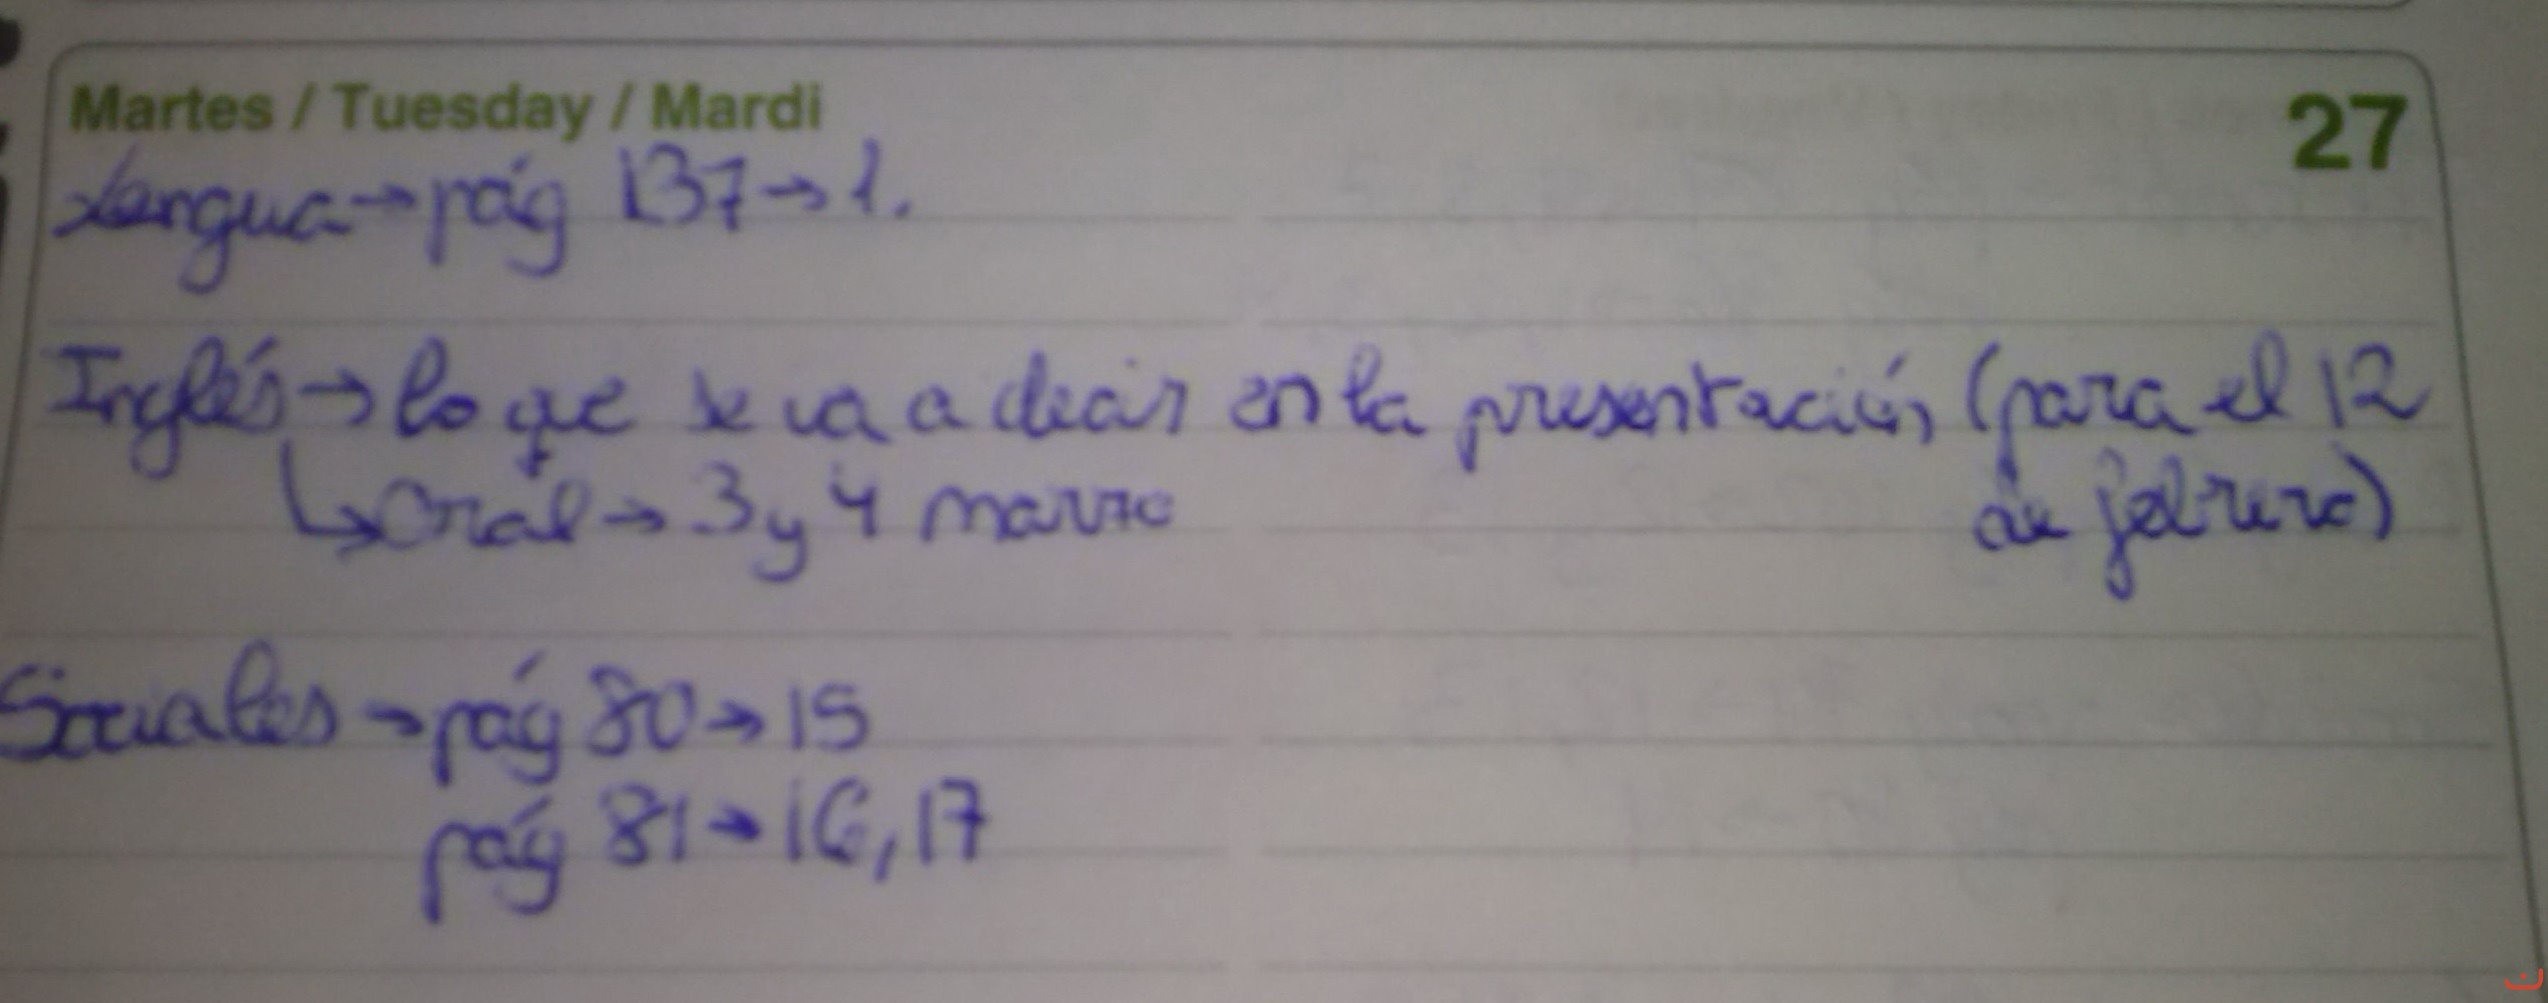 Martes / Tuesday / Mardi 27
Lengua → pág 137 → 1.
Inglés → lo que se va a decir en la presentación (para el 12
de febrero)
↳ Oral → 3 y 4 marzo
Sociales → pág 80 → 15
pág 81 → 16, 17